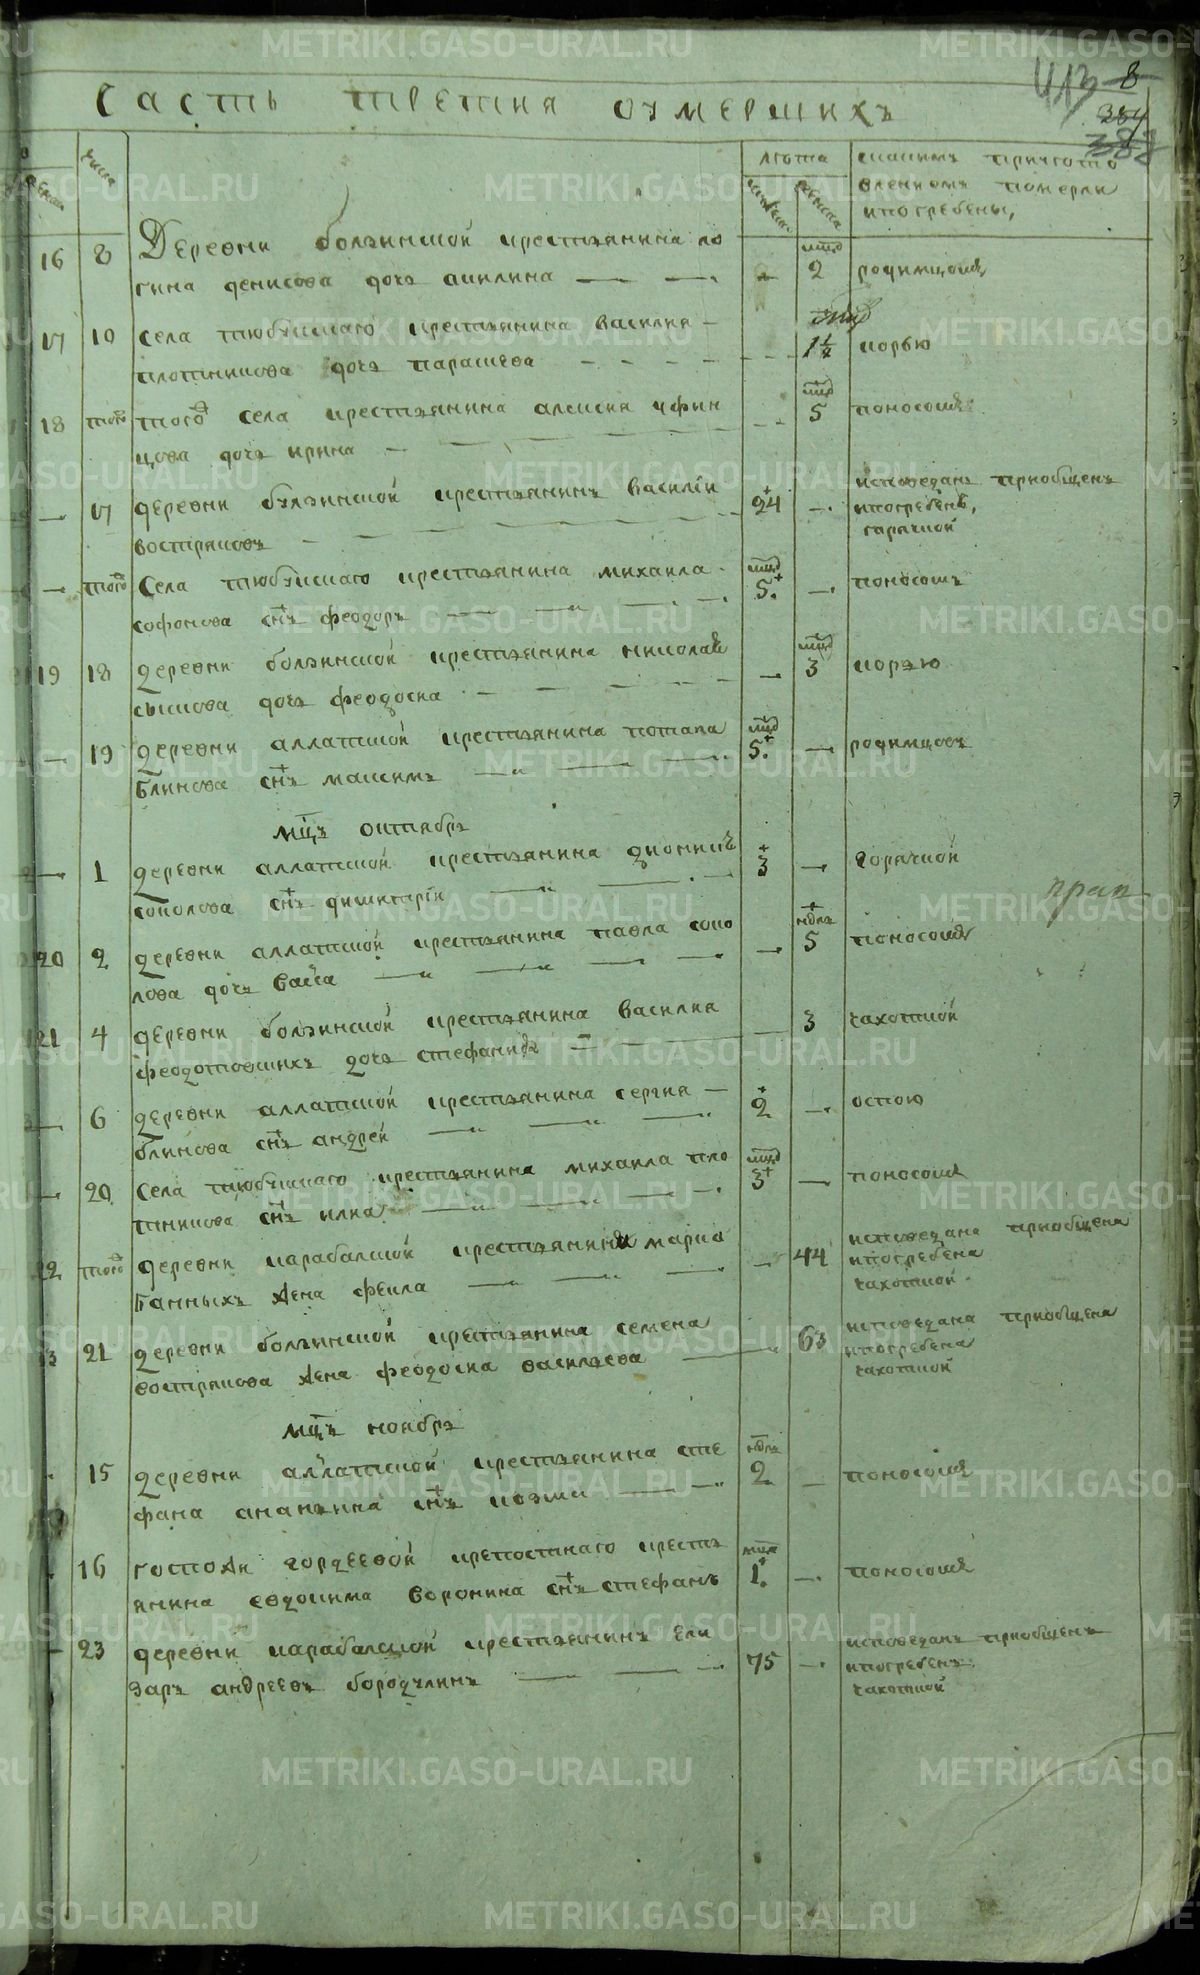 413 8
Часть третия оумершихъ
387
числа
лѣта
какимъ причтото
вленіемъ померли
и погребены,
мцд
16 8 Деревни болзинской крестьянина ло
гина денисова дочь акилина 2 родимцомъ
17 10 Села тюбукскаго крестьянина василия
плотникова дочь парасцева 1½ корью
мцд
18 того того села крестьянина алексия уфин
цова дочь ирина 5 поносомъ
17 деревни булзинской крестьянинъ василіи
востряковъ 24
исповеданъ приобщенъ
и погребенъ,
гарячкой
мцд
того Села тюбукскаго крестьянина михаила
софонова снъ феодоръ 5 поносомъ
мцд
19 18 деревни болзинской крестьянина николая
сыскова дочь феодосиа 3 корью
мцд
19 деревни аллакской крестьянина потапа
Блинова снъ максимъ 5 родимцовъ
мцъ октябрь
1 деревни аллакской крестьянина дионисия
соколова снъ димитріи 3 горячкой
ндль
20 2 деревни аллакской крестьянина павла соко
лова дочь васса 5 поносомъ
21 4 деревни болзинской крестьянина василия
феодотовскихъ дочь стефанида 3 чахоткой
6 деревни аллакской крестьянина сергия
блинова снъ андрей 2 оспою
мцд
20 Села тюбукскаго крестьянина михаила пло
тникова снъ илиа 3 поносомъ
22 того деревни карабалской крестьянина марка
Банныхъ жена фекла 44
исповедана приобщена
и погребена
чахоткой
23 21 деревни болзинской крестьянина семена
вострякова жена феодосиа васильева 63
исповедана приобщена
и погребена
чахоткой
мцъ ноябрь
ндль
15 деревни аллакской крестьянина сте
фана ананьина снъ козма 2 поносомъ
мцд
16 госпожи гордеевой крепостнаго кресть
янина евдокима воронина снъ стефанъ 1 поносомъ
23 деревни карабалской крестьянинъ ели
заръ андреевъ бородулинъ 75
исповеданъ приобщенъ
и погребенъ
чахоткой
METRIKI.GASO-URAL.RU